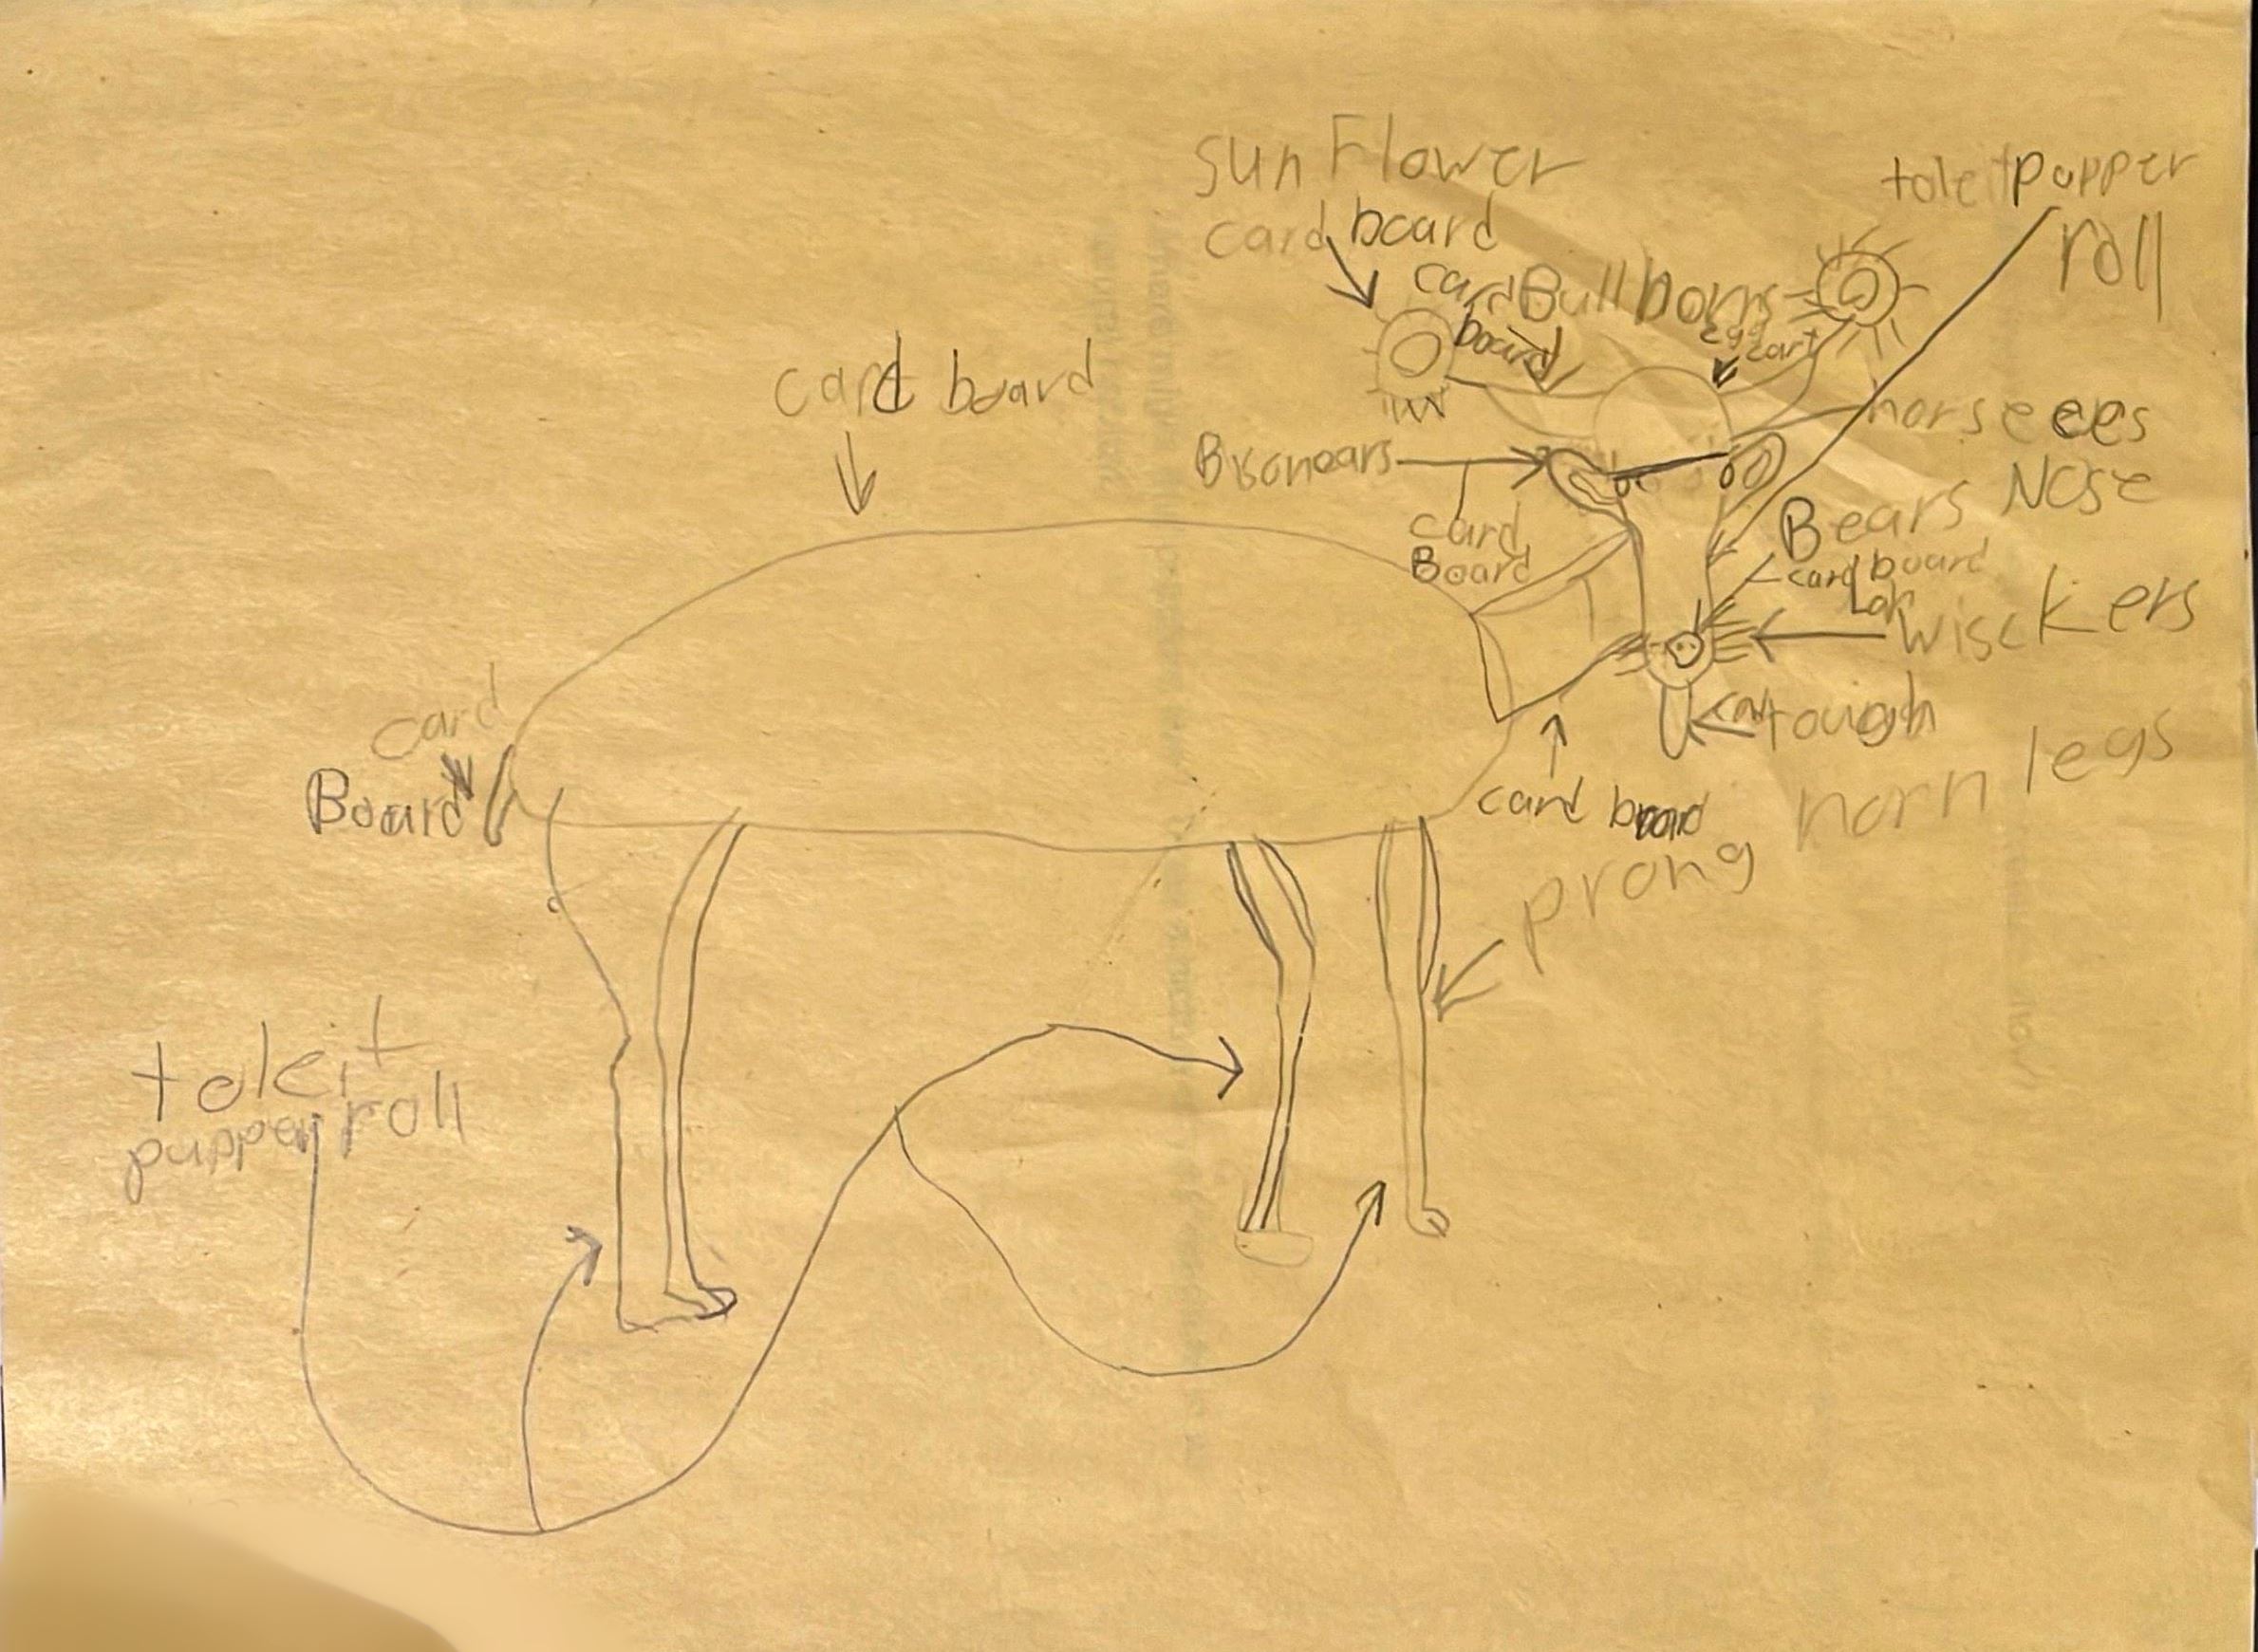 sun Flower
card board
toleitpapper
roll
card Bull horns
board
egg
cart
card board
horse ees
Bisonears
Nose
Bears
card
Board
card board
wisckers
card
Board
tough
legs
horn
prong
card board
toleit
papper roll